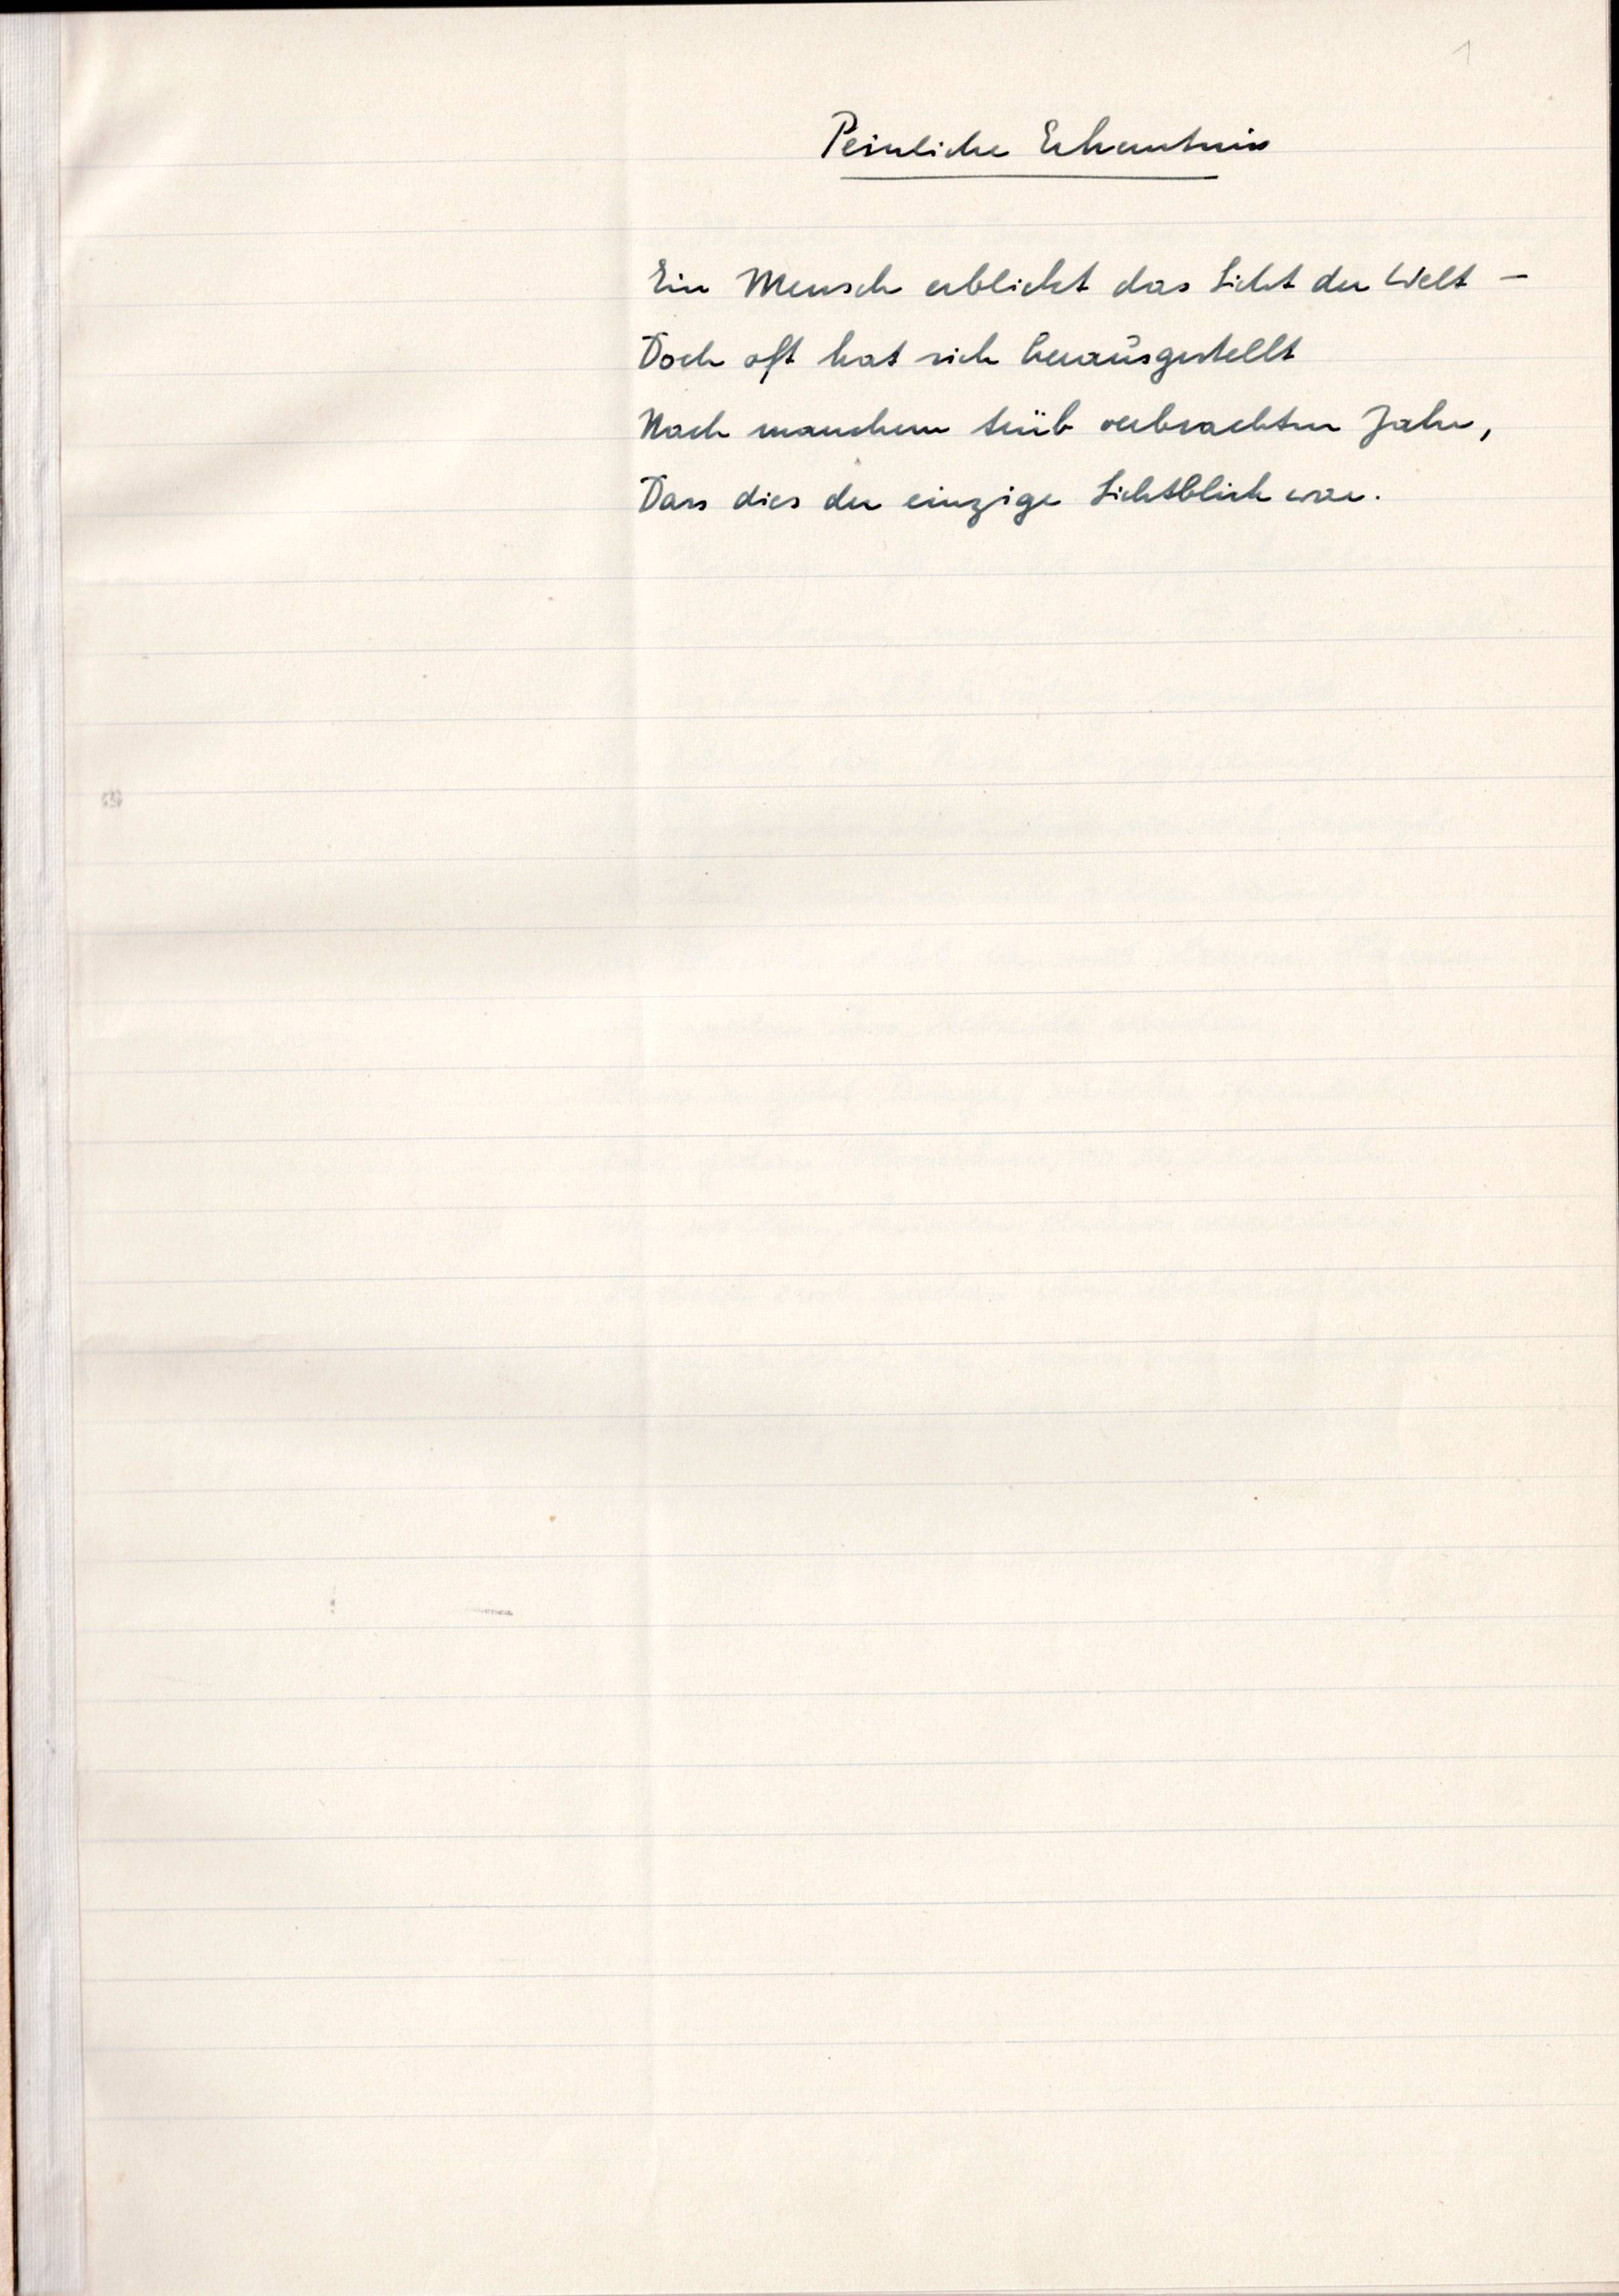 1
Peinliche Erkentnis
Ein Mensch erblickt das Licht der Welt –
Doch oft hat sich herausgestellt
Nach manchem trüb verbrachten Jahr,
Dass dies der einzige Lichtblick war.